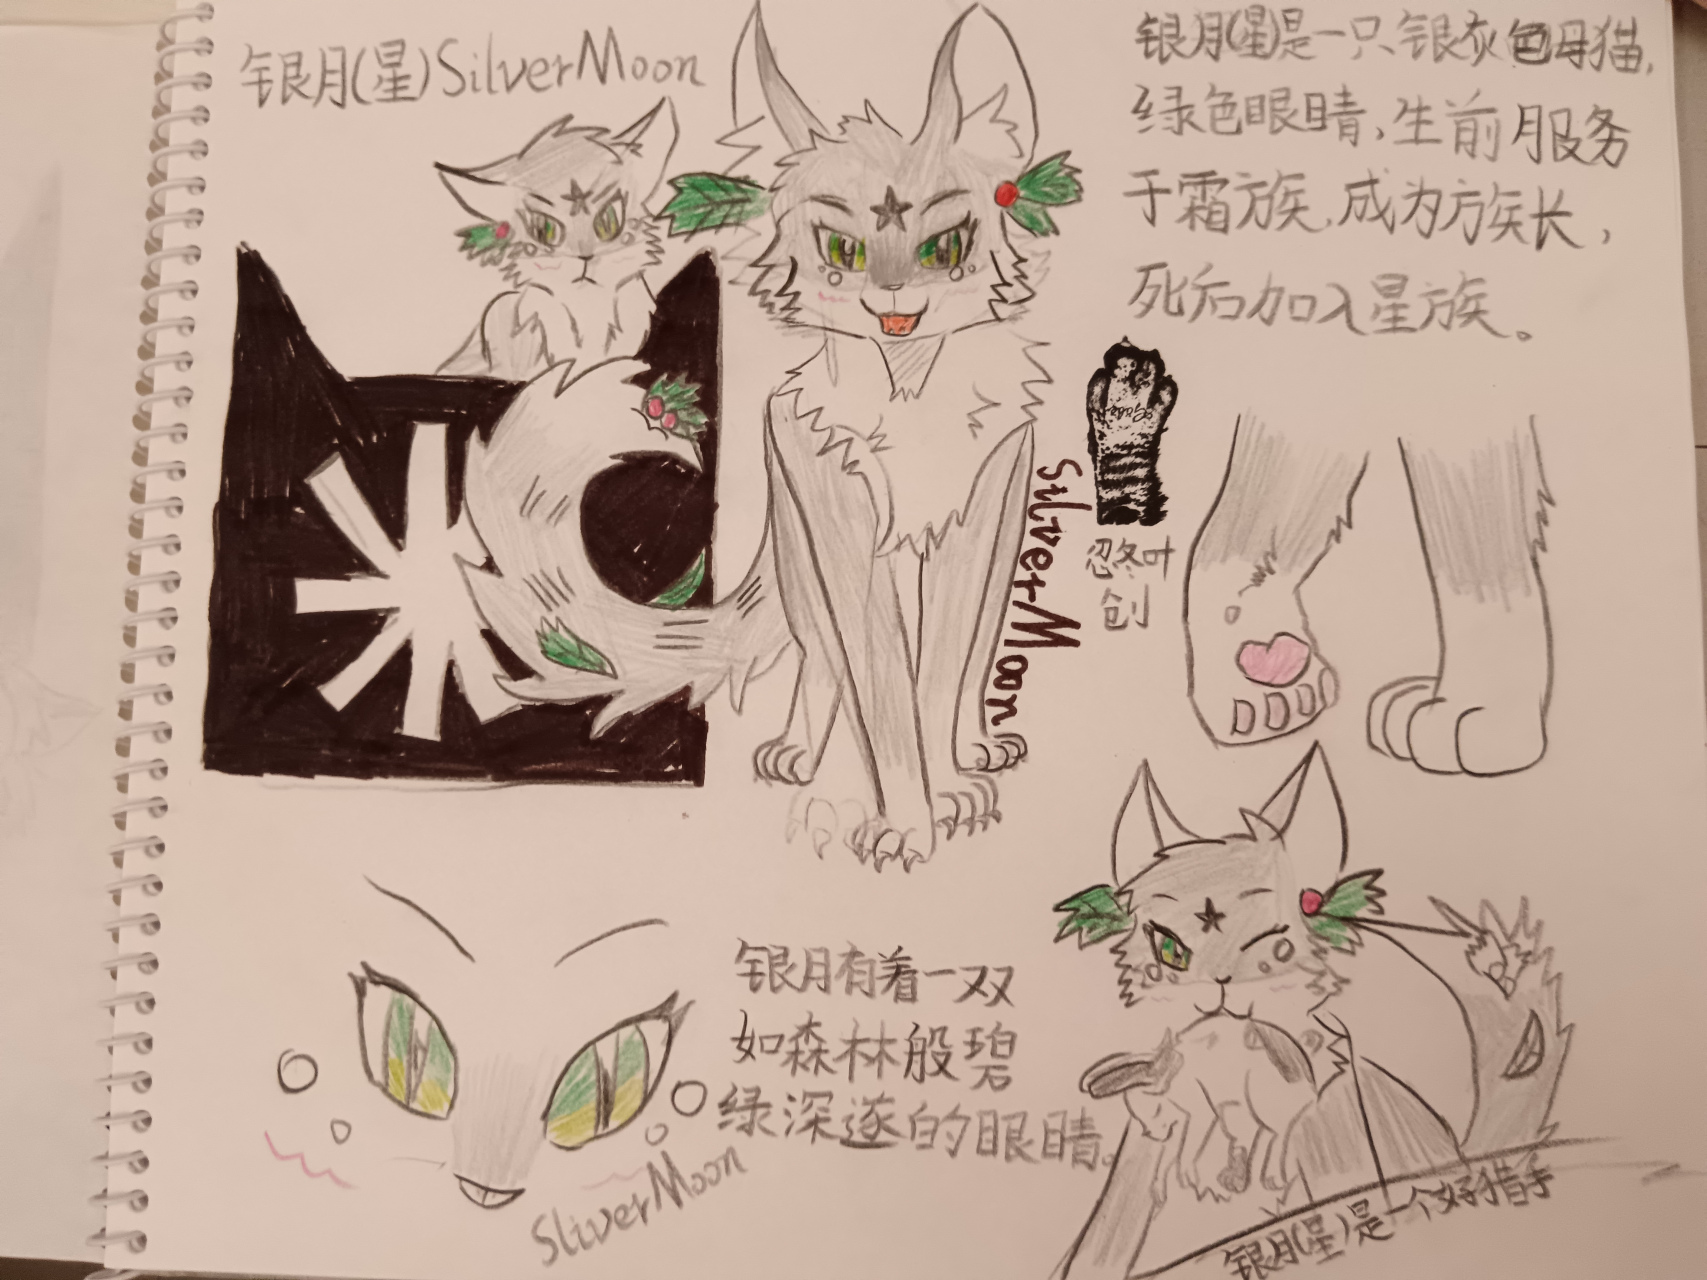 银月(星)SilverMoon
银月(星)是一只银灰色母猫,
绿色眼睛,生前服务
于霜族,成为族长,
死后加入星族。
SilverMoon
忍冬叶
创
银月有着一双
如森林般碧
绿深邃的眼睛。
SliverMoon
银月(星)是一个好猎手